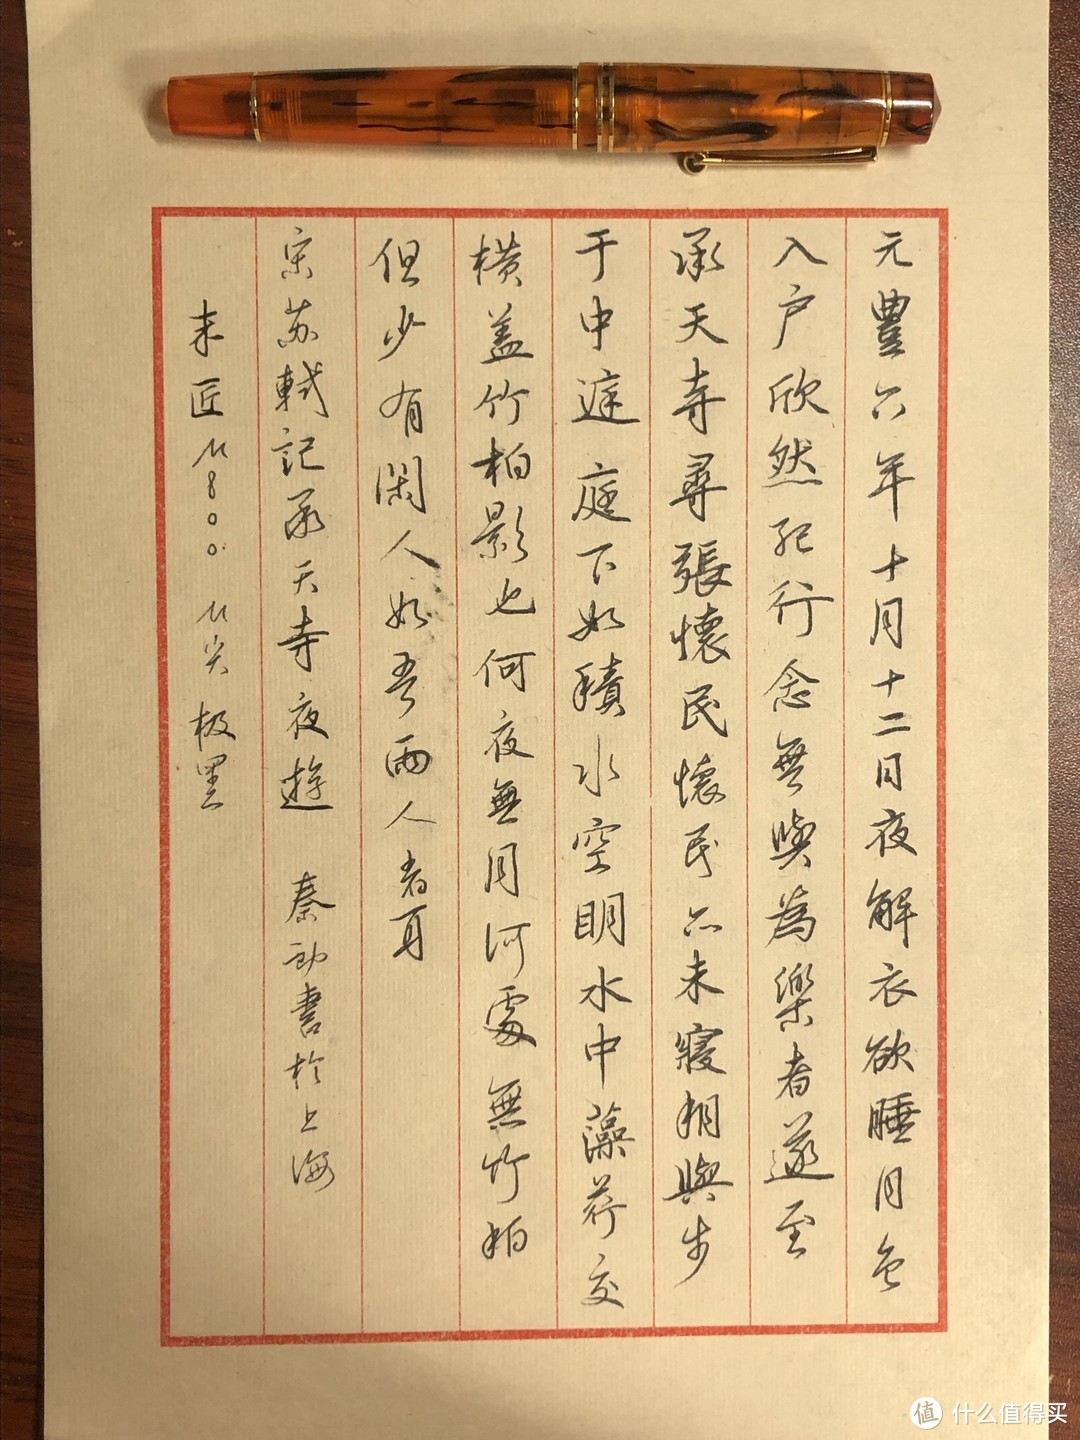 元豐六年十月十二日夜解衣欲睡月色
入户欣然起行念無與為樂者遂至
承天寺尋張懷民懷民亦未寢相與步
于中庭庭下如積水空明水中藻荇交
横盖竹柏影也何夜無月何處無竹柏
但少有閑人如吾兩人者耳
宋苏軾記承天寺夜遊 秦 書於上海
末匠M800 M尖极黑
值 什么值得买